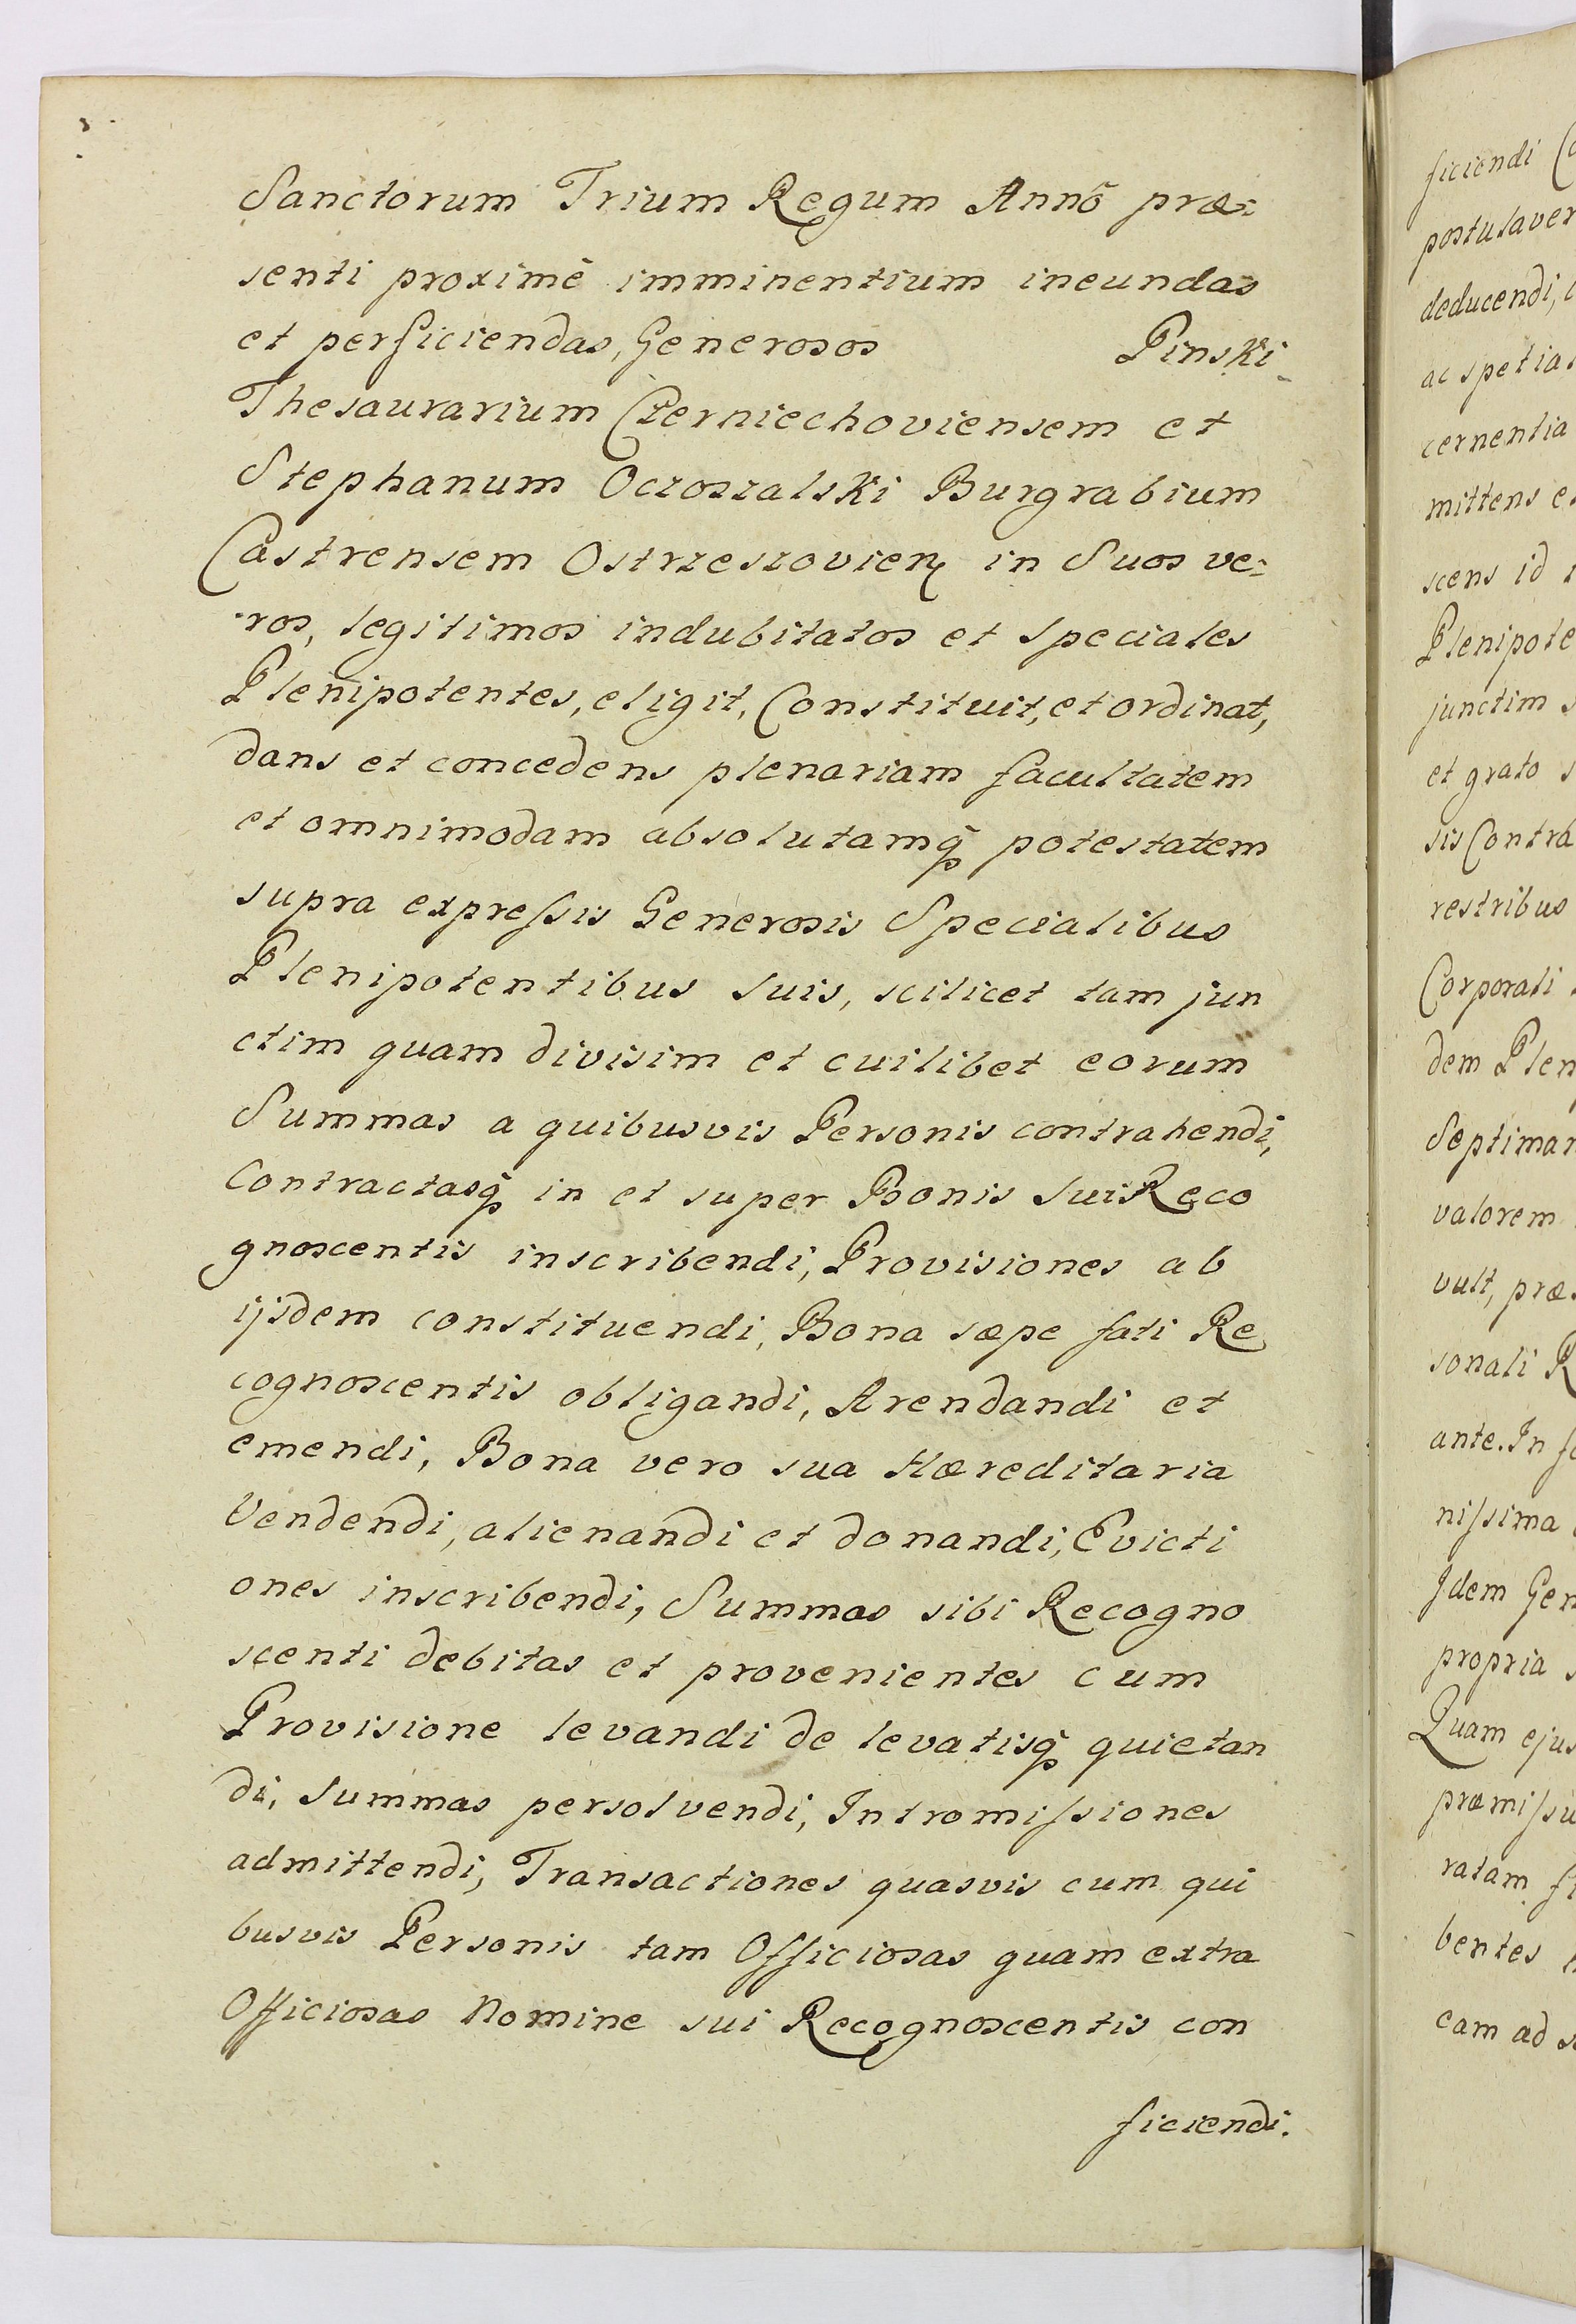 Sanctorum Trium Regum Annō præ=
senti proximè imminentium ineundas
et perficiendas, Generosos Pinski
Thesaurarium Czerniechoviensem et
Stephanum Oczoszalski Burgrabium
Castrensem Ostrzeszovien in Suos ve=
ros, legitimos indubitatos et speciales
Plenipotentes, eligit, Constituit, et ordinat,
dans et concedens plenariam facultatem
et omnimodam absolutamq̃ potestatem
supra expreſsis Generosis Specialibus
Plenipotentibus suis, scilicet tam jun
ctim quam divisim et cuilibet eorum
Summas a quibusvis Personis contrahendi,
Contractasq̃ in et super Bonis sui Reco
gnoscentis inscribendi, Provisiones ab
ijsdem constituendi, Bona sæpe fati Re
cognoscentis obligandi, Arendandi et
emendi, Bona vero sua Hæreditaria
Vendendi, alienandi et donandi, Evicti
ones inscribendi, Summas sibi Recogno
scenti debitas et provenientes cum
Provisione levandi de levatisq̃ quietan
di, summas persolvendi, Intromiſsiones
admittendi, Transactiones quasvis cum qui
busvis Personis tam Officiosas quam extra
Officiosas Nomine sui Recognoscentis con
ficiendi.
ficiendi
postulaver
deducendi,
ac spetia
cernentia
mittens
scens id
Plenipote
junctim
et grato
sis Contra
restribus
Corporali
dem Plen
Septiman
valorem
vult, præ
sonali R
ante. In
niſsima
Idem Gen
propria
Quam ejus
præmiſsu
ratam
bentes
eam ad